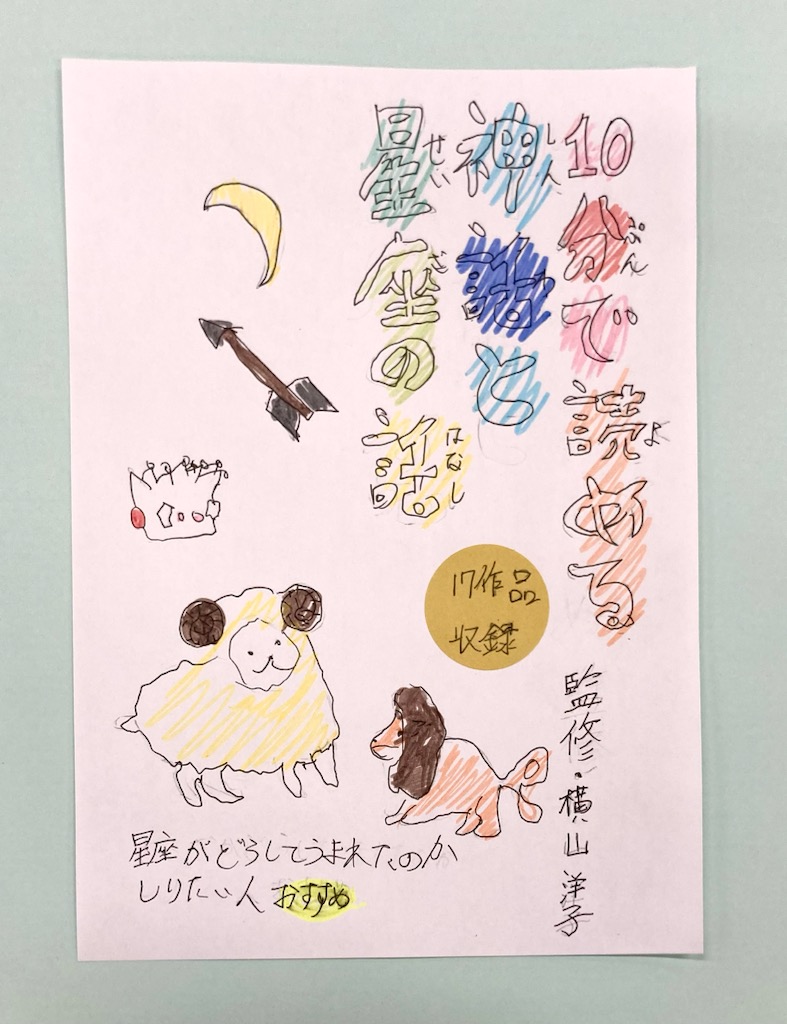 10分で読める
神話と
星座の話
ぷん
よ
しん
わ
せい
ざ
はなし
17作品
収録
監修・横山洋子
星座がどうしてうまれたのか
しりたい人おすすめ